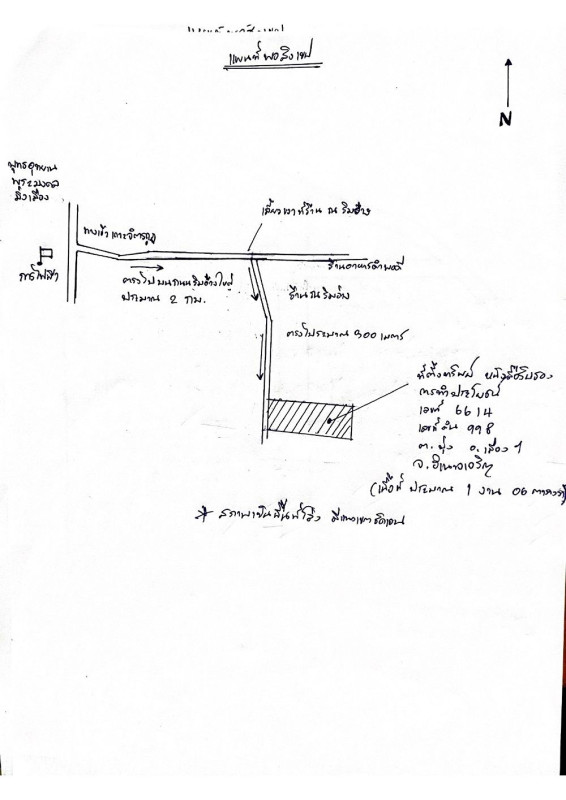 แผนที่พอสังเขป
N
พุทธอุทยาน
พระมงคล
มิ่งเมือง
เลี้ยวขวาที่ร้าน ณ ริมอ่าง
ทางเข้า
การไฟฟ้า
ร้านอาหาร
ตรงไปบนถนนริมอ่างใหญ่
ประมาณ 2 กม.
ร้าน ณ ริมอ่าง
ตรงไปประมาณ 300 เมตร
ที่ตั้งทรัพย์ หนังสือรับรอง
การทำประโยชน์
เลขที่ 6614
เลขที่ดิน 998
ต. บุ่ง อ. เมือง ฯ
จ. อำนาจเจริญ
(เนื้อที่ ประมาณ 1 งาน 06 ตารางวา)
* สภาพเป็นพื้นที่โล่ง มีแนวเขตชัดเจน